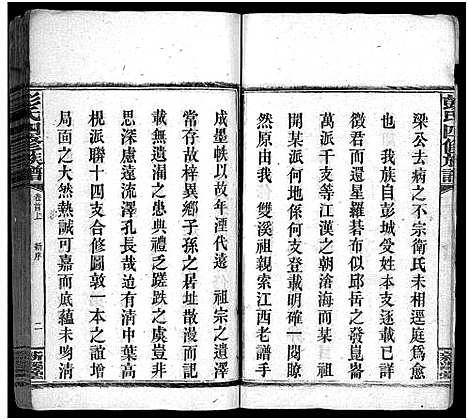 彭氏四修族譜
梁公去病之不宗衛氏未相逕庭爲愈
也 我族自彭城受姓大本大支載巳詳
徵君而還星羅碁布似邱岳之發崑崙
萬派千支等江漢之朝滄海而某 祖
開某派何支登載明明一閱瞭
然原由我 雙溪祖親索江西老譜手
成墨帙以故年湮代遠 祖宗之遺澤
常存故梓異鄉子孫之居址散漫而記
載無遺漏之患典禮乏蹉跌之虞豈非
深思慮遠流澤孔長哉至有清中葉高
梘派聯十四支合修圖敦一本之誼增
局面之大然熱誠可嘉而底蘊未吻清
彭氏四修族譜
卷首上 新序 二